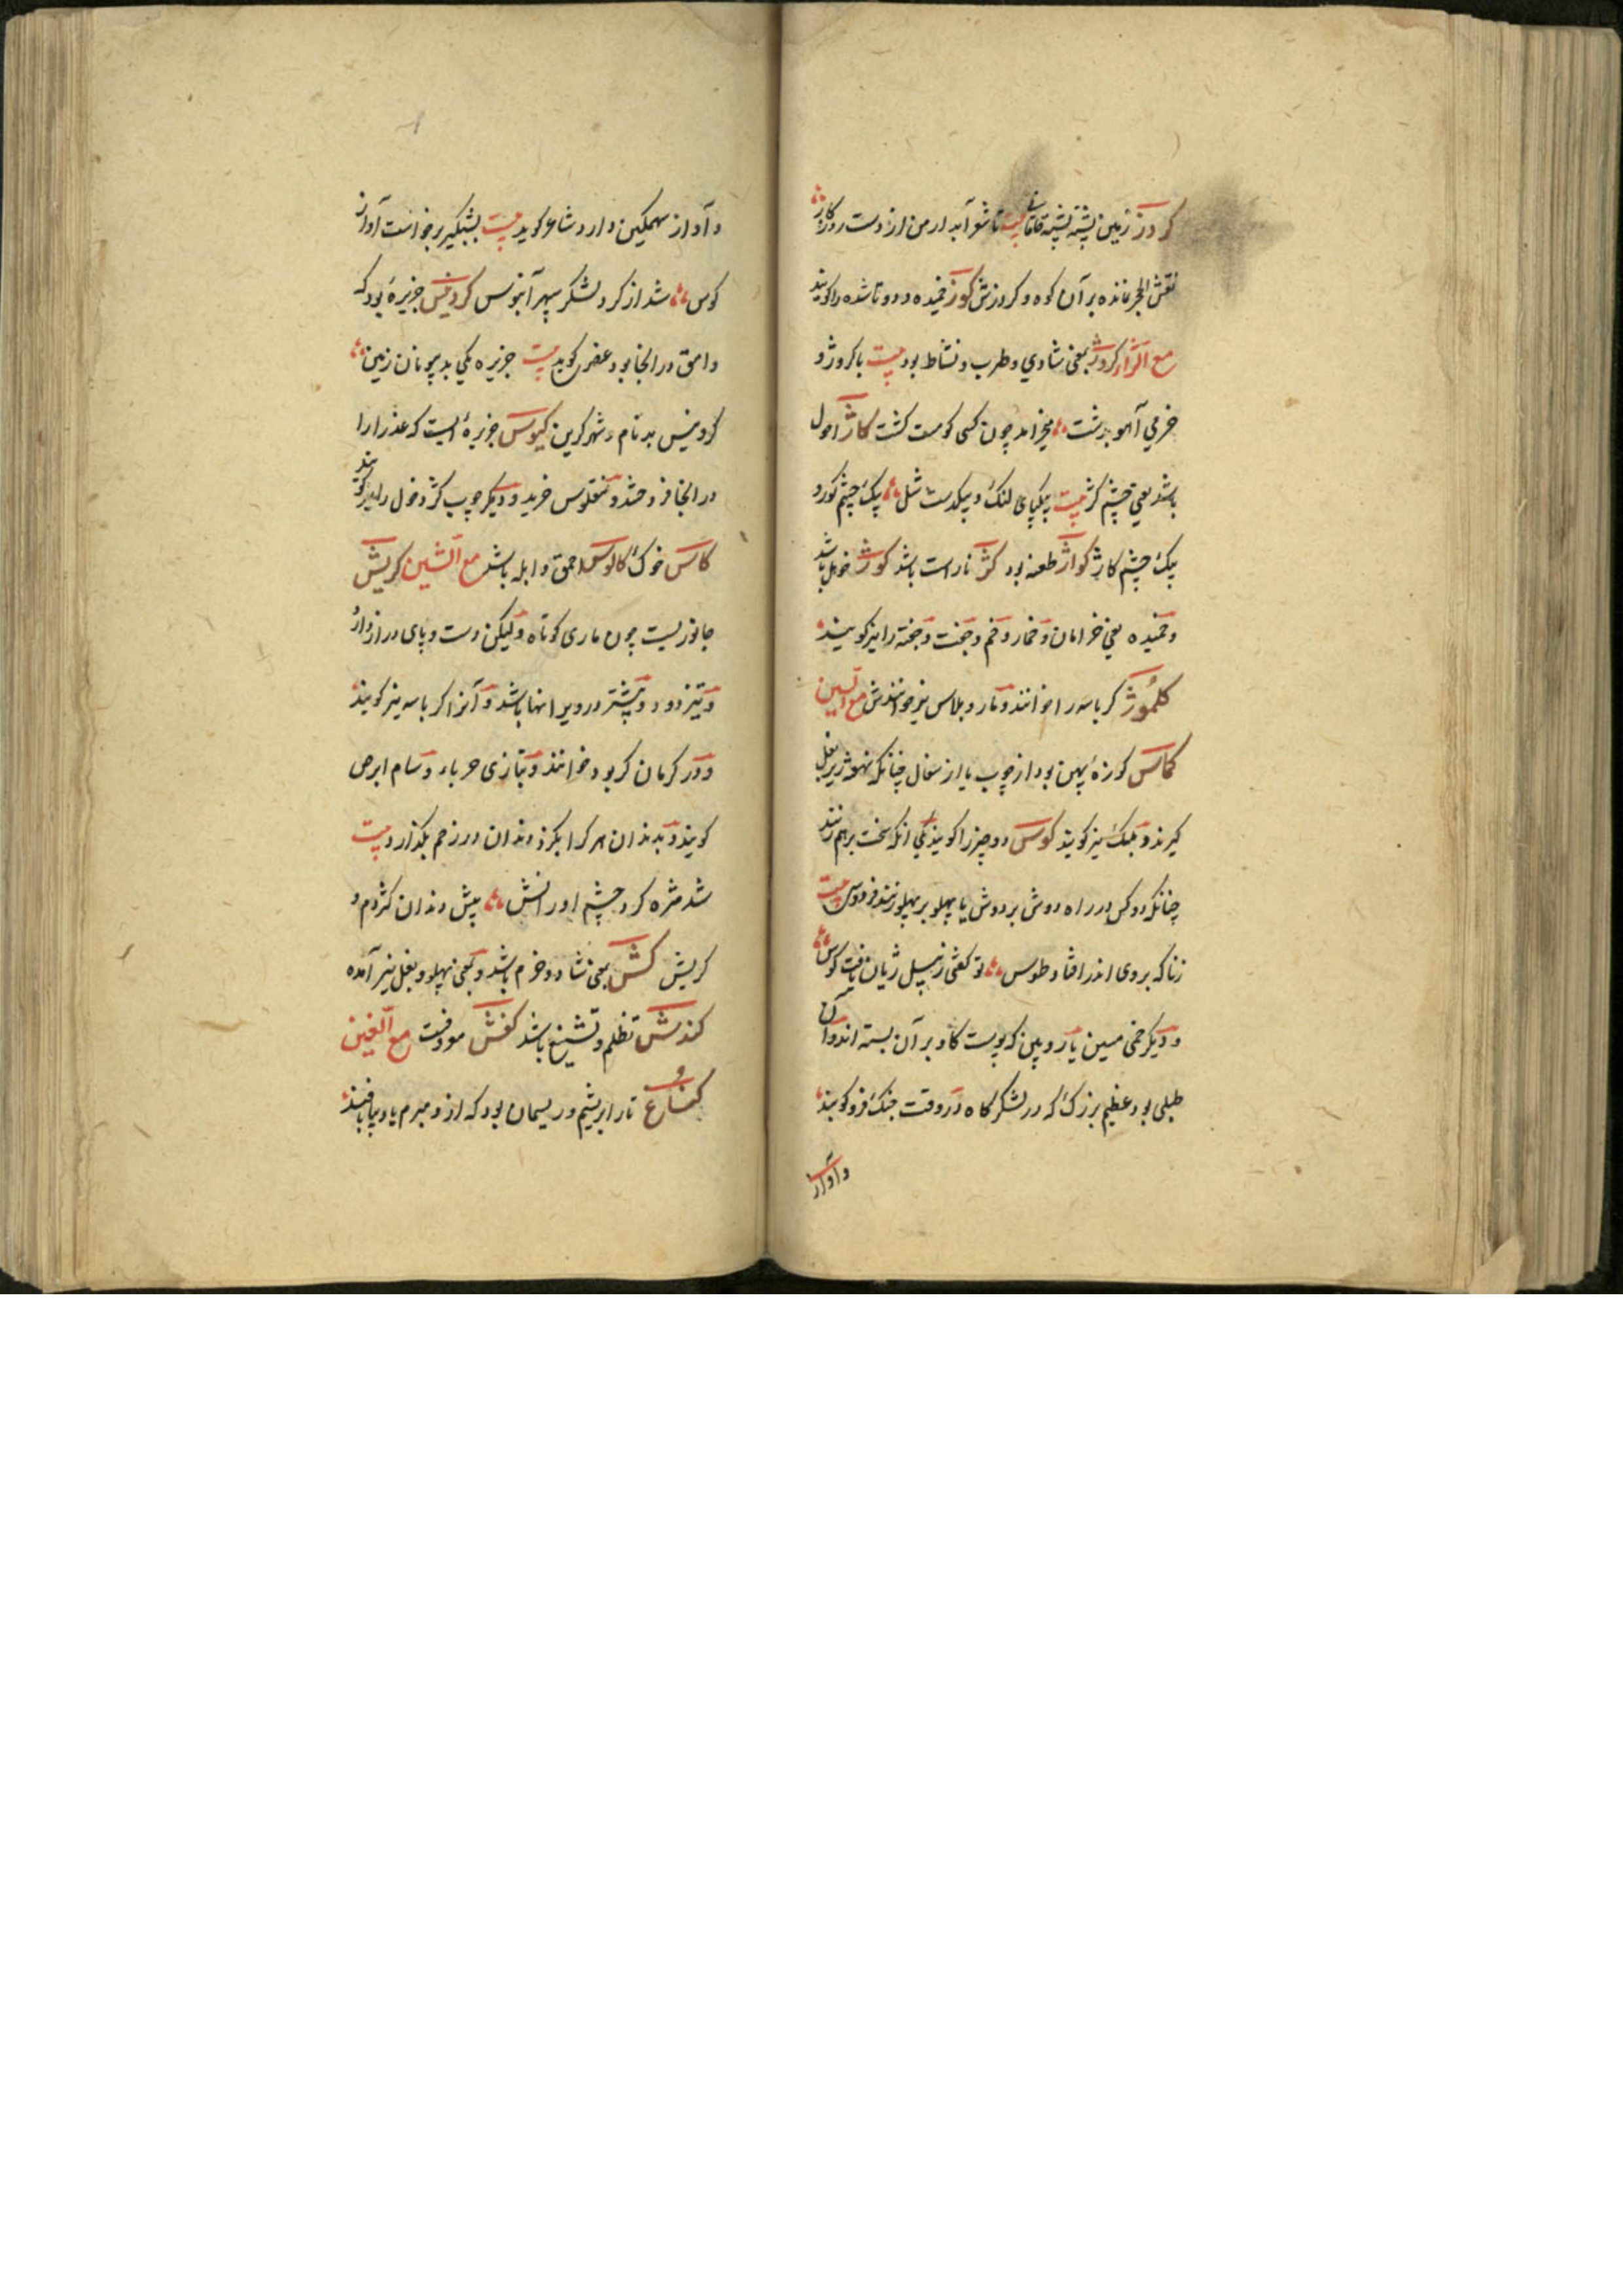 کردز زمین پشته پشته خاقانی بیت تا شعر آبدار من از دست روزگار
نقش الحجر نمانده بر آن کوه و کردرش کوز خمیده و دو تا شده را کویند
مع الژاء کروژ بمعنی شادی و طرب و نشاط بود بیت با کروژ و
خرمی آهو بدشت میخرامد چون کسی کو مست کشت کاژ احول
باشد یعنی چشم کژ بیت بیکپای لنک و بیکدست شل بیک چشم کور و
بیک چشم کاژ کواژ طعنه بود کژ ناراست باشد کوژ خوهل باشد
و خمیده یعنی خرامان و خمار و خم و جفت و جفته را نیز کویند
کلموژ کرباسه را خوانند و مار و بلاس نیز خوانندش مع السین
کماس کوزهٔ پهن بود از چوب یا از سفال چنانکه زیر بغل
کیرند و نیز کویند کوس دو چیز را کویند یکی انکه سخت بر هم زنند
چنانکه دو کس در راه دوش بر دوش یا پهلو بر پهلو زنند فردوسی بیت
زناکه بروی اندر افتاد طوس تو کفتی ز پیل ژیان یافت کوس
و دیکر خمی مسین یا رویین که پوست کاو بر آن بسته اند و آن
طبلی بود عظیم بزرک که در لشکرکاه در وقت جنک فرو کویند
و آواز
و آواز سهمکین دارد شاعر کوید بیت بشبکیر برخواست آواز
کوس شد از کرد لشکر سپهر آبنوس کردنیس جزیرهٔ بود که
وامق در انجا بود عنصری کوید بیت جزیره یکی بد بیونان زمین
کردنیس بد نام و شهر کزین کیوس جزیرهٔ ایست که عذرا را
در انجا فروختند و منقلوس خرید و دیکر چوب کژ و خول را نیز کویند
کاس خوک کالوس احمق و ابله باشد مع الشین کربش
جانوریست چون ماری کوتاه و لیکن دست و پای دراز دارد
و تیز دود و بیشتر در ویرانها باشد و آنرا کرباسه نیز کویند
و در کرمان کربو خوانند و بتازی حرباء و سام ابرص
کویند و بدندان هر کرا بکزد دندان در زخم بکذارد بیت
شد مژه کرد چشم او رانش پیش دندان کژدم و
کربش کش یعنی شاد و خرم باشد و بمعنی پهلو و بغل نیز آمده
کندش تظلم و تشنیع باشد کفش معروفست مع الغین
کناغ تار ابریشم و ریسمان بود که از و مبرم یا دیبا بافند